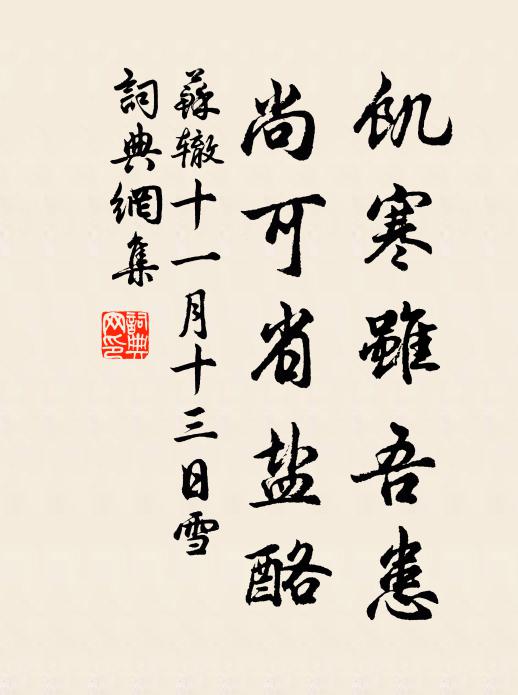 飢寒雖吾患
尚可省盐酪
蘇辙十一月十三日雪
詞典網集
詞典网印